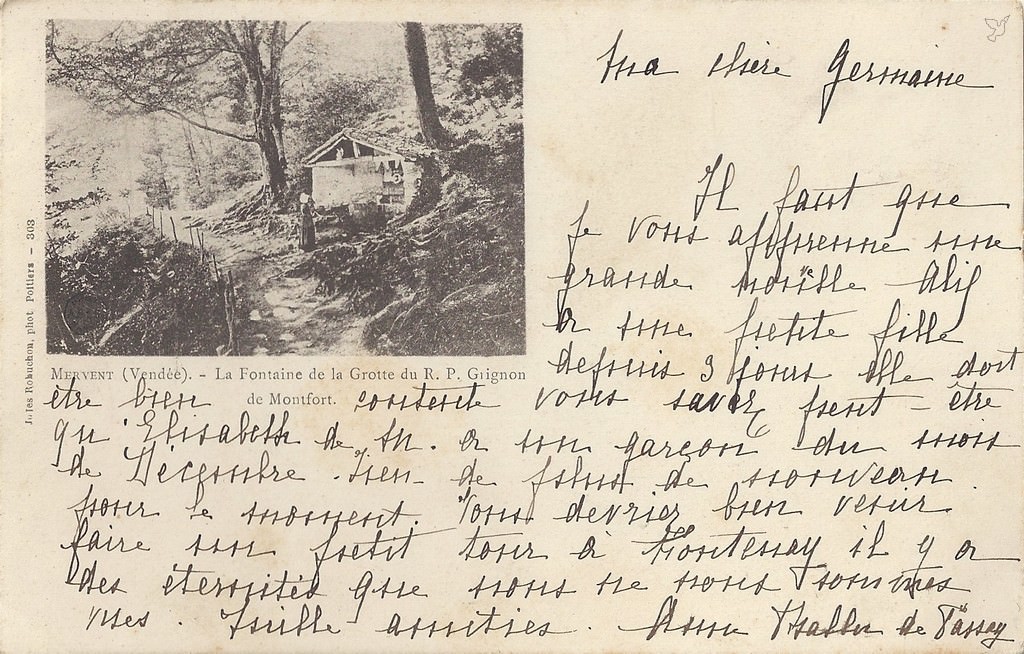 Ma chère Germaine
Il faut que
je vous apprenne une
grande nouvelle Alix
a une petite fille
depuis 3 jours elle doit
Jules Robuchon, phot Poitiers - 303
MERVENT (Vendée). - La Fontaine de la Grotte du R. P. Grignon
de Montfort.
être bien contente vous savez peut-être
qu'Elisabeth de M. a un garçon du mois
de Décembre. Rien de plus de nouveau
pour le moment. Vous devriez bien venir
faire un petit tour à Fontenay il y a
des éternités que nous ne nous sommes
vues. Mille amitiés. de